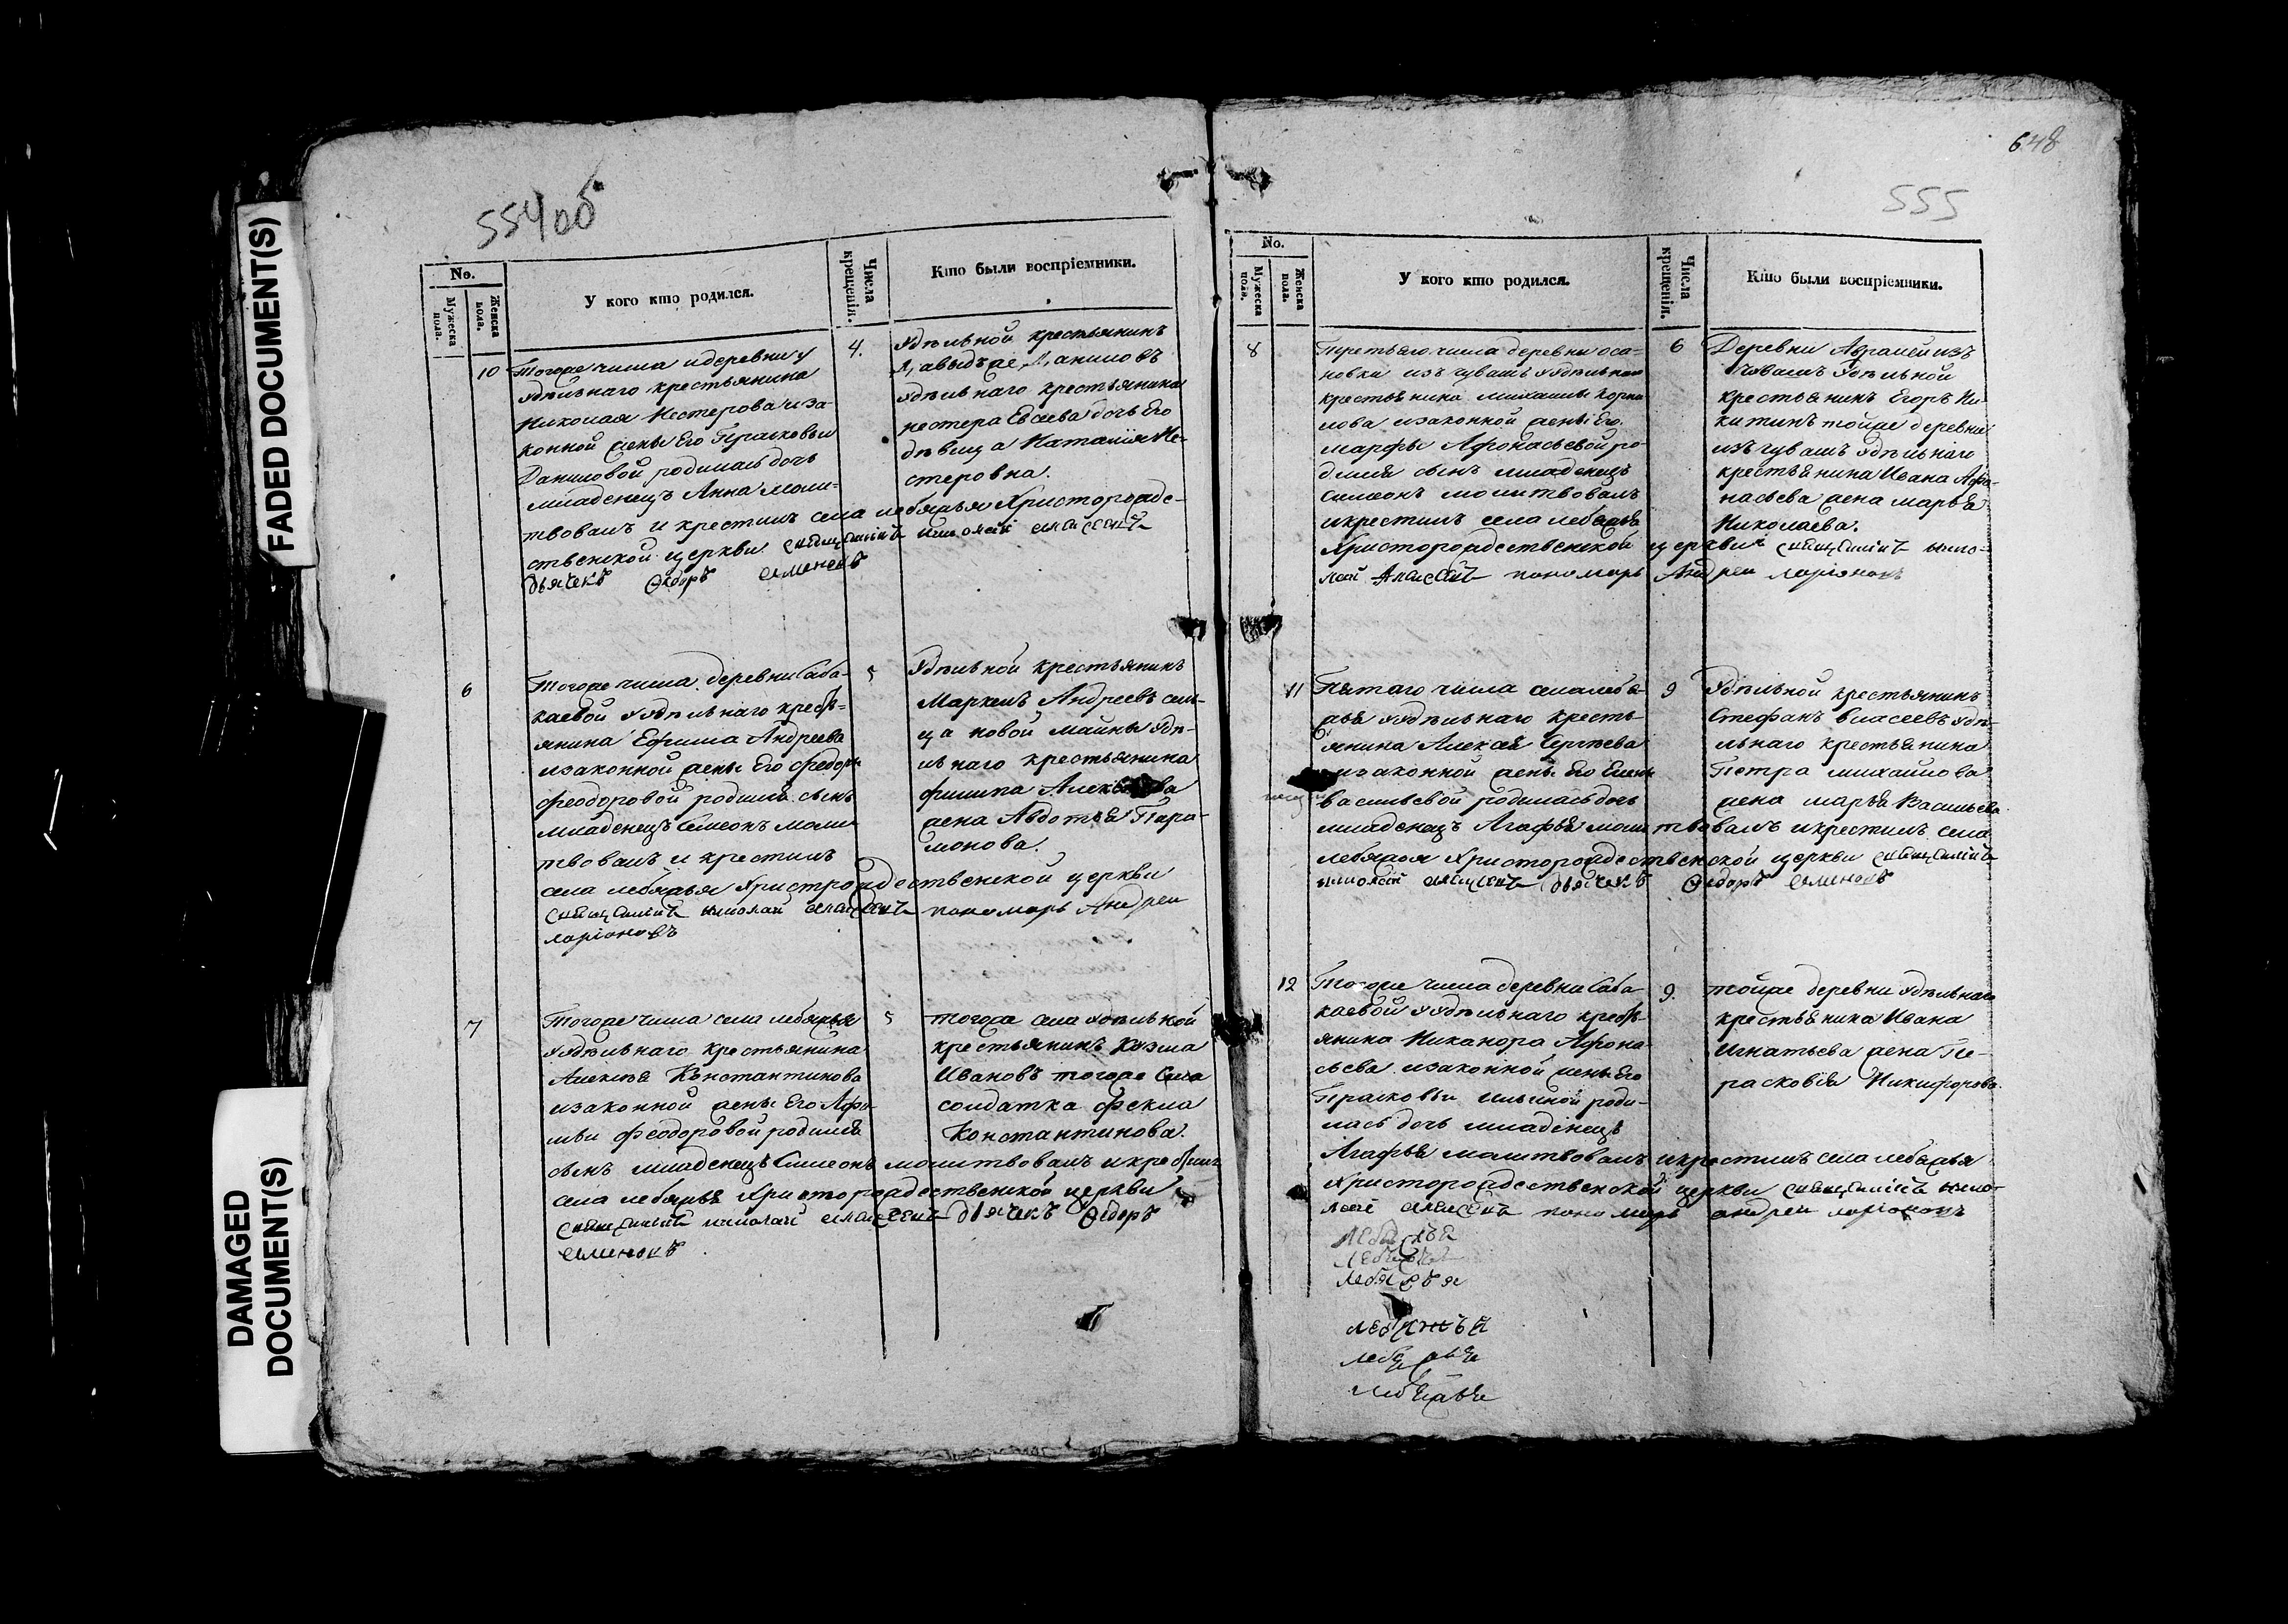 FADED DOCUMENT(S)
DAMAGED
DOCUMENT(S)
554об
No.
Мужеска пола.
Женска пола.
У кого кто родился.
Числа крещенія.
Кто были воспріемники.
10
Тогоже числа идеревни у
удѣльнаго крестьянина
Николая Нестерова иза-
конной жены Его Прасковьи
Даниловой родилась дочь
младенецъ Анна моли-
твовалъ и крестилъ села лебяжья Христорожде-
ственской церкви священникъ николай алексеевъ
дьячекъ Ѳедоръ семеновъ
4.
Удѣльной крестьянинъ
Давыдъ же Даниловъ
удѣльнаго крестьянина
нестера Евсеева дочь Его
дѣвица Наталія Не-
стеровна.
6
Тогоже числа деревни Саба-
каевой уудѣльнаго кресть-
янина Ефима Андреева
изаконной жены Его федоры
феодоровой родился сынъ
младенецъ Симеонъ моли
твовалъ и крестилъ
села лебяжья Христорождественской церкви
священникъ николай алексеевъ пономарь Андреи
ларіоновъ
5
Удѣльной крестьянинъ
Маркелъ Андреевъ сель-
ца новой майны удѣ-
льнаго крестьянина
филипа Алексеева
жена Авдотья Пара-
монова.
7
Тогоже числа села лебяжья
уудѣльнаго крестьянина
Алексѣя Константинова
изаконной жены Его Афи-
мьи феодоровой родился
сынъ младенецъ Симеонъ молитвовалъ икрестилъ
села лебяжья Христорождественской церкви
священникъ николай алексеевъ дьячекъ Ѳедоръ
семеновъ
5
тогоже села удѣльной
крестьянинъ Кузма
Ивановъ тогоже Села
солдатка фекла
Константинова.
648
555
No.
Мужеска пола.
Женска пола.
У кого кто родился.
Числа крещенія.
Кто были воспріемники.
8
Третьяго числа деревни оса-
новки изъ чувашъ уудѣльнаго
крестьянина михаилы корни
лова изаконной жены Его
марфы Афонасьевой ро-
дился сынъ младенецъ
Симеонъ молитвовалъ
икрестилъ села лебяжья
Христорождественской церкви священникъ нико-
лай Алексеевъ пономарь Андреи ларіоновъ
6
Деревни Авралей изъ
Чувашъ удѣльной
крестьянинъ Егоръ Ни-
китинъ тойже деревни
изъ чувашъ удѣльнаго
крестьянина Ивана Афо-
насьева жена марья
Николаева.
11
Пятаго числа селалебя-
жья уудѣльнаго кресть-
янина Алексея Сергѣева
изаконной жены Его Елены
васильевой родилась дочь
младенецъ Агафья молитвовалъ икрестилъ села
лебяжья Христорождественской церкви священникъ
николай алексеевъ дьячекъ Ѳедоръ семеновъ
9
Удѣльной крестьянинъ
Стефанъ Власеевъ удѣ-
льнаго крестьянина
Петра михайлова
жена марья Васильева
12
Тогоже числа деревни Саба
каевой уудѣльнаго кресть-
янина Никанора Афона-
сьева изаконной жены Его
Прасковьи Ильиной роди-
лась дочь младенецъ
Агафья молитвовалъ икрестилъ села лебяжья
Христорождественской церкви священникъ нико-
лай алексеевъ пономарь андреи ларіоновъ
9.
тойже деревни удѣльнаго
крестьянина Ивана
Игнатьева жена Пе-
расковья Никифорова.
лебяжья
лебяжья
лебяжья
лебяжья
лебяжья
лебяжья